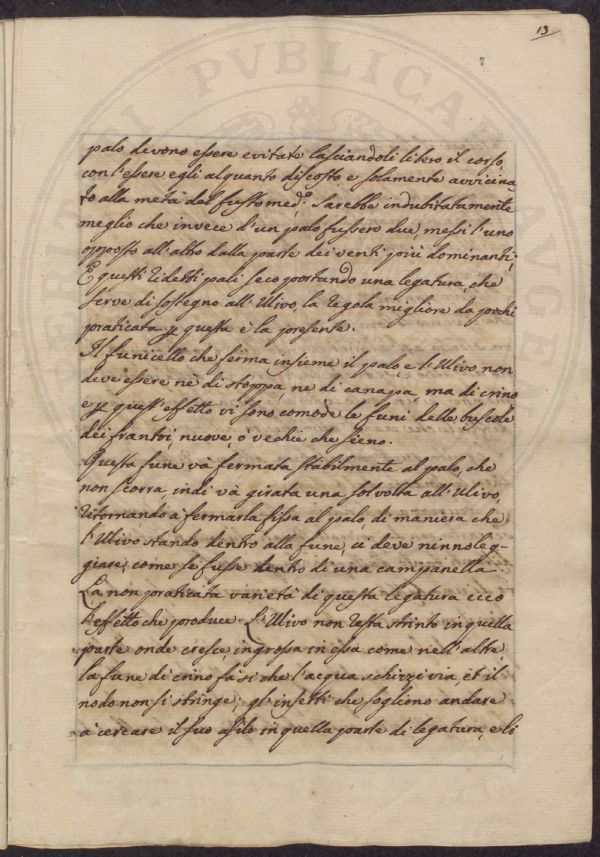 13
palo devono essere evitate lasciandoli libero il corso,
con l'essere egli alquanto discosto, e solamente avvicina
to alla metà del fusto med.º Sarebbe indubitatamente
meglio che invece d'un palo fussero due, messi l'uno
opposto all'altro dalla parte dei venti più dominanti;
E questi ridetti pali seco portando una legatura, che
serve di sostegno all'Ulivo, la regola migliore da pochi
praticata p questa è la presente.
Il funicello che ferma insieme il palo, e l'Ulivo non
deve essere nè di stoppa, ne di canapa, ma di crino
e p quest'effetto vi sono comode le funi delle buscole
dei frantoi, nuove, ò vechie che sieno.
Questa fune và fermata stabilmente al palo, che
non scorra, indi và girata una sol volta all'Ulivo,
ritornando a fermarla fissa al palo, di maniera che
l'Ulivo stando dentro alla fune, ci deve ninnoleg-
giare, come se fusse dentro di una campanella.
La non praticata varietà di questa legatura ecco
l'effetto che produce. L'Ulivo non resta strinto in quella
parte onde cresce, ingrossa in essa come nell'altre
la fune di crino fà si che l'acqua schizzi via, et il
nodo non si stringe; gl'insetti che sogliono andare
à cercare il suo asilo in quella parte di legatura, e li
PVBLICA